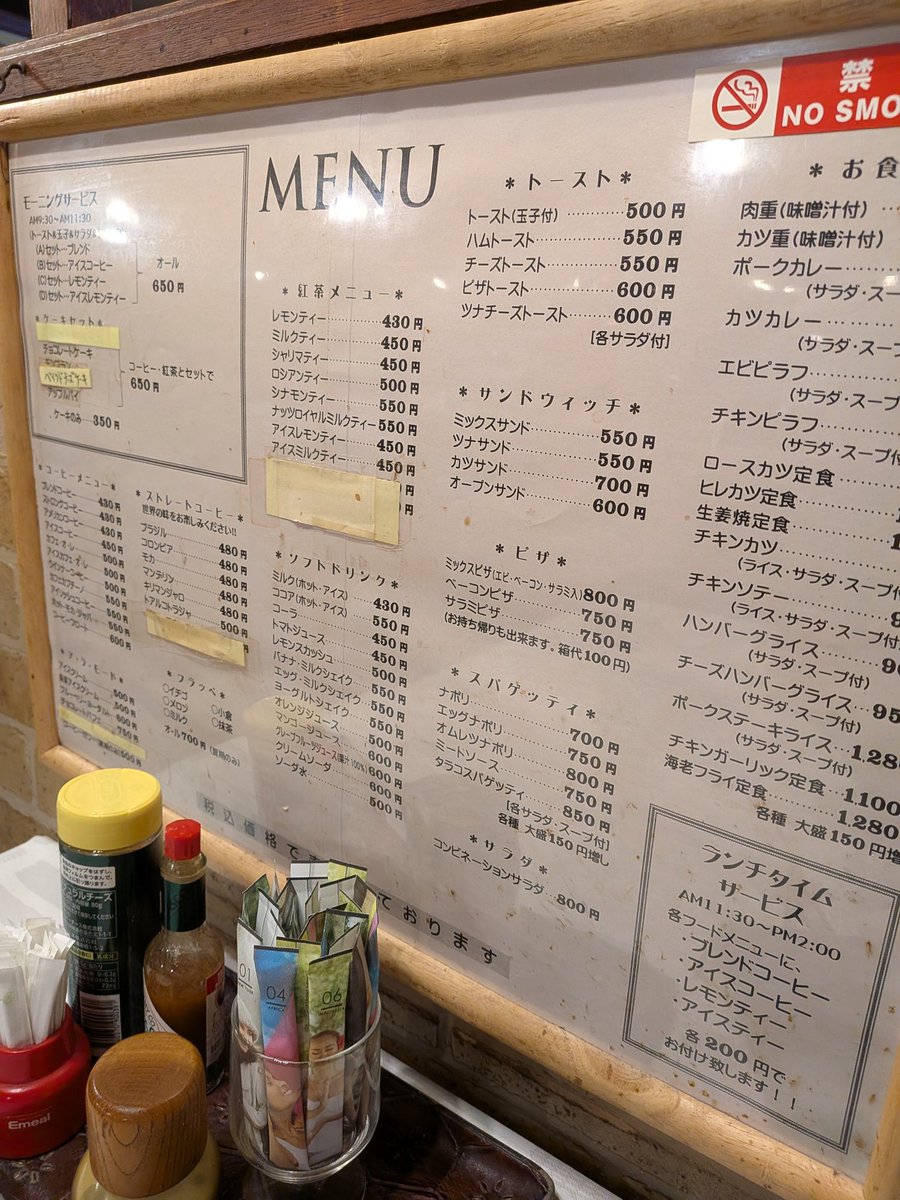 モーニングサービス
AM9:30～AM11:30
(トースト&玉子&サラダ&
(A)セット…ブレンド
(B)セット…アイスコーヒー
(C)セット…レモンティー
(D)セット…アイスレモンティー
オール
650円
*ケーキセット*
チョコレートケーキ
アップルパイ
コーヒー・紅茶とセットで
650円
ケーキのみ…350円
*コーヒーメニュー*
ブレンドコーヒー 430円
ストロングコーヒー 450円
アメリカンコーヒー 430円
アイスコーヒー 450円
カフェ・オ・レ 500円
アイスカフェ・オ・レ 500円
ウインナーコーヒー 500円
カフェカプチーノ 500円
アイリッシュコーヒー 550円
ホット・モカ・ジャバ 550円
コーヒーフロート 600円
*ア・ラ・モード*
アイスクリーム 500円
*ストレートコーヒー*
世界の味をお楽しみください!!
ブラジル 480円
コロンビア 480円
モカ 480円
マンデリン 480円
キリマンジャロ 480円
トアルコトラジャ 500円
*フラッペ*
○イチゴ
○メロン ○小倉
○ミルク ○抹茶
オール700円(夏期のみ)
MENU
*紅茶メニュー*
レモンティー 430円
ミルクティー 450円
シャリマティー 450円
ロシアンティー 500円
シナモンティー 550円
ナッツロイヤルミルクティー 550円
アイスレモンティー 450円
アイスミルクティー 450円
*ソフトドリンク*
ミルク(ホット・アイス) 430円
ココア(ホット・アイス) 550円
コーラ 450円
トマトジュース 450円
レモンスカッシュ 500円
バナナ・ミルクシェイク 550円
エッグ・ミルクシェイク 550円
ヨーグルトシェイク 550円
オレンジジュース 500円
マンゴージュース 600円
グレープフルーツジュース(果汁100%) 600円
クリームソーダ 600円
ソーダ水 500円
*トースト*
トースト(玉子付) 500円
ハムトースト 550円
チーズトースト 550円
ピザトースト 600円
ツナチーズトースト 600円
[各サラダ付]
*サンドウィッチ*
ミックスサンド 550円
ツナサンド 550円
カツサンド 700円
オープンサンド 600円
*ピザ*
ミックスピザ(エビ・ベーコン・サラミ入) 800円
ベーコンピザ 750円
サラミピザ 750円
(お持ち帰りも出来ます。箱代100円)
*スパゲッティ*
ナポリ 700円
エッグナポリ 750円
オムレツナポリ 800円
ミートソース 750円
タラコスパゲッティ 850円
[各サラダ・スープ付]
各種 大盛150円増し
*サラダ*
コンビネーションサラダ 800円
禁
NO SMO
*お食
肉重(味噌汁付)
カツ重(味噌汁付)
ポークカレー
(サラダ・スー
カツカレー
(サラダ・スープ
エビピラフ
(サラダ・スープ
チキンピラフ
(サラダ・スープ付
ロースカツ定食
ヒレカツ定食
生姜焼定食
チキンカツ
(ライス・サラダ・スープ付
チキンソテー
(ライス・サラダ・スープ付
ハンバーグライス
(サラダ・スープ付)
チーズハンバーグライス 95
(サラダ・スープ付)
ポークステーキライス 1,280
(サラダ・スープ付)
チキンガーリック定食 1,100
海老フライ定食 1,280
各種 大盛150円増
ランチタイム
サービス
AM11:30～PM2:00
各フードメニューに、
・ブレンドコーヒー
・アイスコーヒー
・レモンティー
・アイスティー
各200円で
お付け致します!!
税込価格で
ております
Emeal
01
04
AFRICA
06